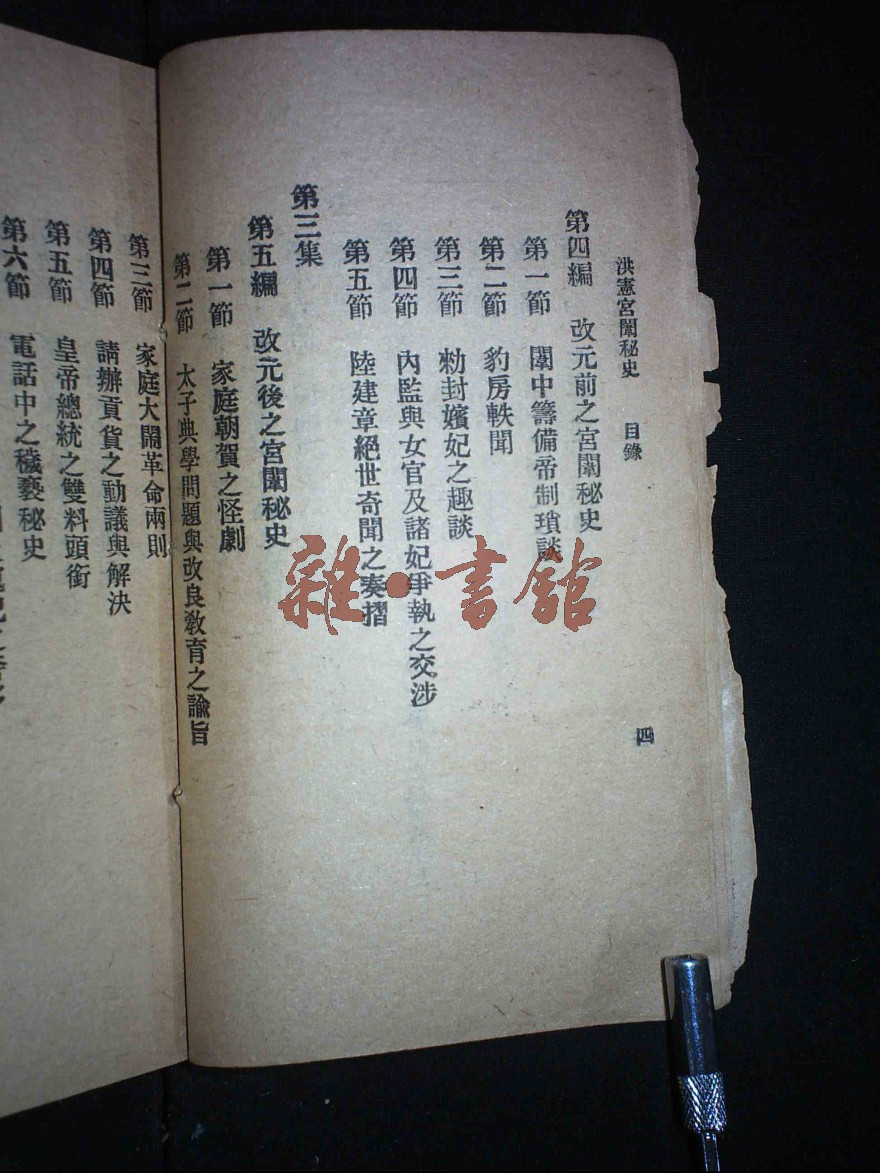 洪憲宮闈秘史 目錄 四
第四編 改元前之宮闈秘史
第一節 闈中籌備帝制瑣談
第二節 豹房軼聞
第三節 勑封嬪妃之趣談
第四節 內監與女官及諸妃爭執之交涉
第五節 陸建章絕世奇聞之奏摺
第三集
第五編 改元後之宮闈秘史
第一節 家庭朝賀之怪劇
第二節 太子典學問題與改良敎育之諭旨
第三節 家庭大鬧革命兩則
第四節 請辦貢貨之動議與解決
第五節 皇帝總統之雙料頭銜
第六節 電話中之穢褻秘史
雜·書館